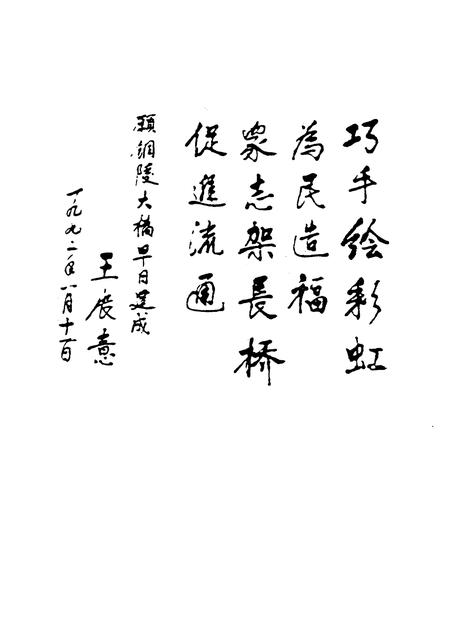 巧手绘彩虹
為民造福
眾志架長桥
促進流通
願銅陵大橋早日建成
王展意
一九九二年八月十一日